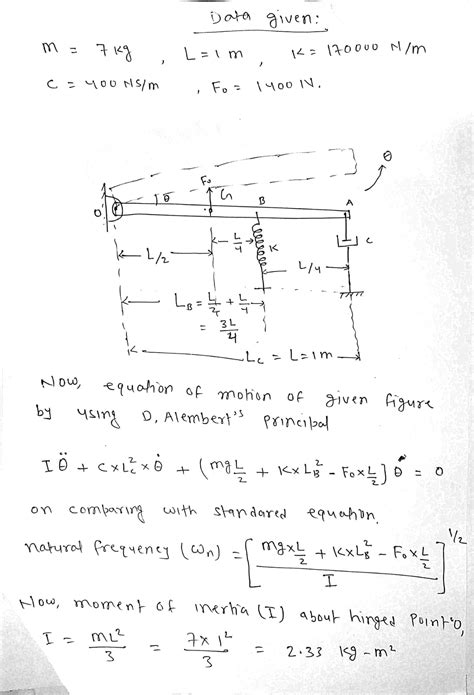 Data given:
m = 7 kg , L = 1 m , K = 170000 N/m
C = 400 NS/m , F₀ = 1400 N.
θ
F₀
θ
G
B
A
O
L/4
K
C
L/2
L/4
L_B = L/2 + L/4
= 3L/4
L_C = L = 1m
Now, equation of motion of given figure
by using D, Alembert's principal
I θ̈ + C×L_C² × θ̇ + (mg L/2 + K×L_B² - F₀×L/2) θ = 0
on combaring with standared equation,
natural frequency (ωn) = [ (mg×L/2 + K×L_B² - F₀×L/2) / I ]^1/2
Now, moment of inertia (I) about hinged point 'O,
I = mL²/3 = 7×1²/3 = 2.33 kg-m²